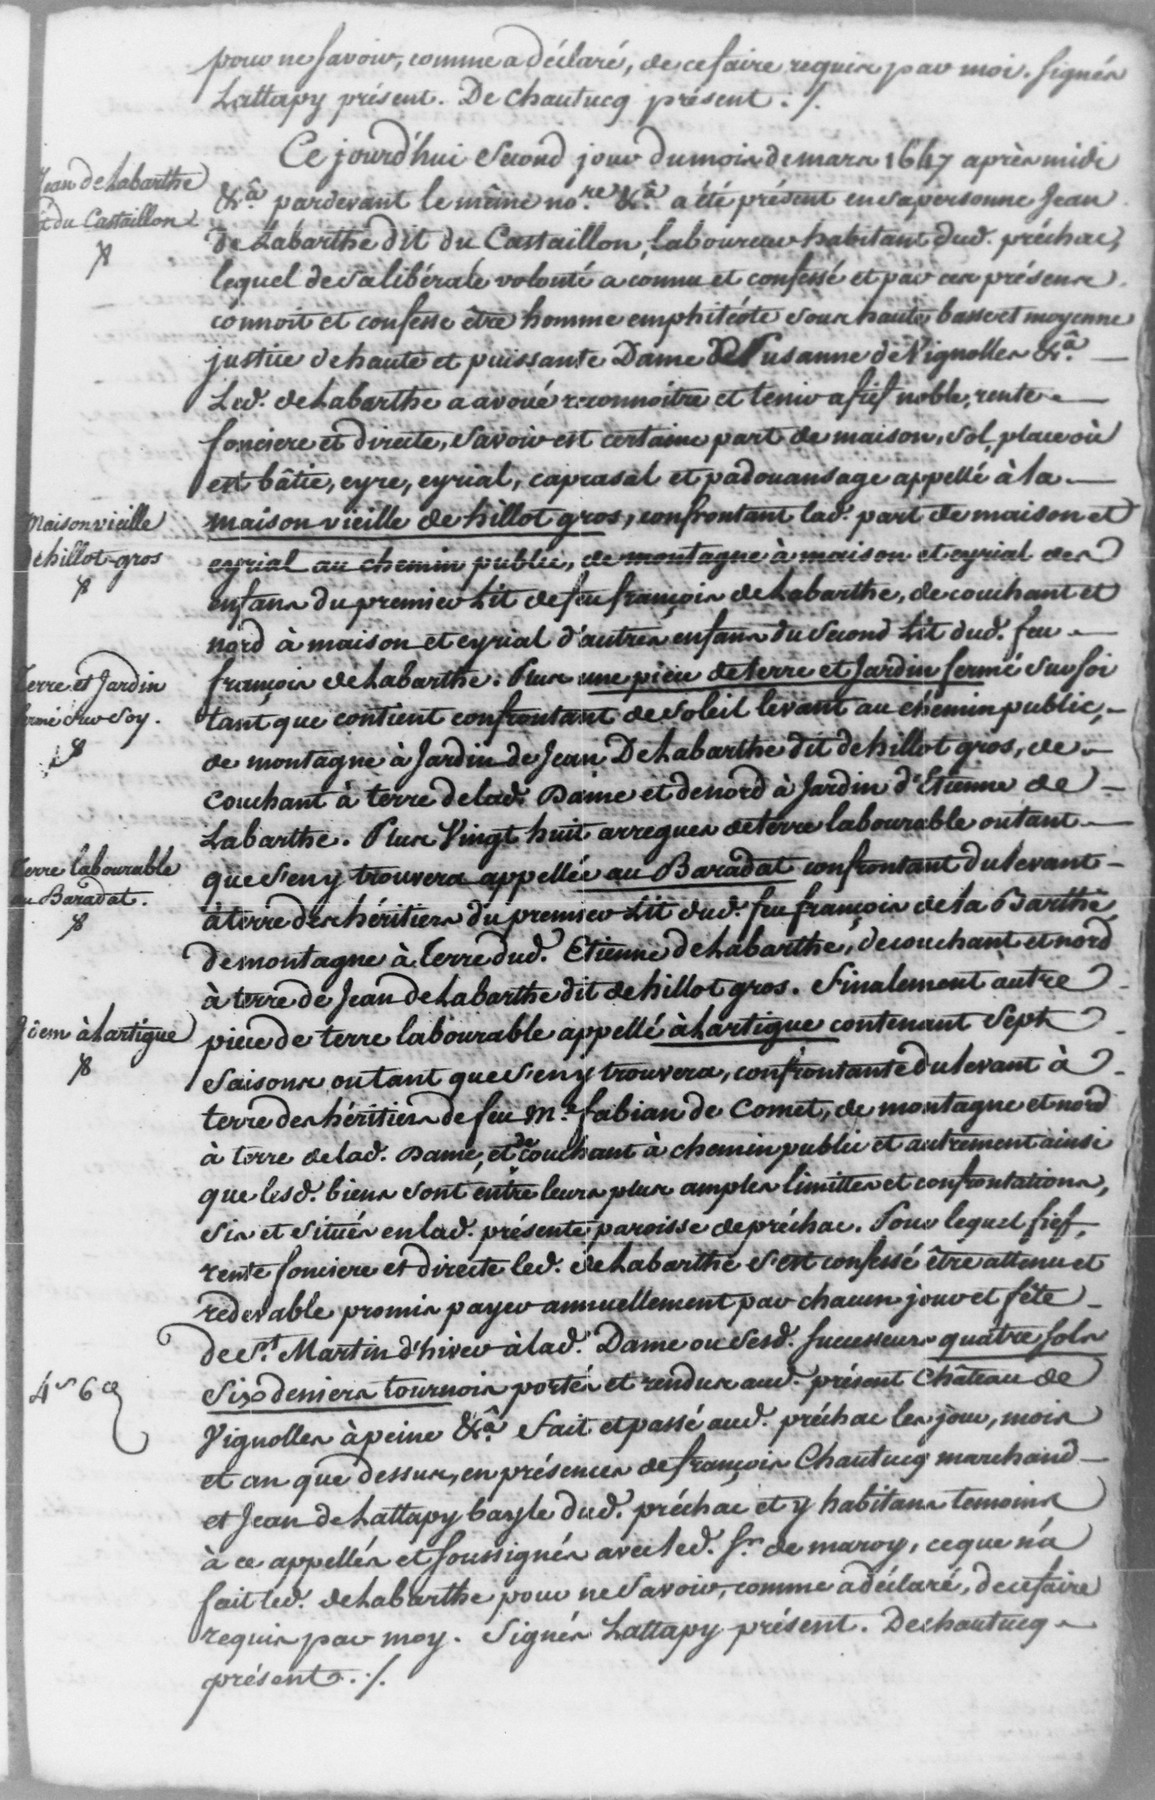 pour ne savoir, comme a déclaré, de ce faire requis par moi. signés
Lattapy présent. De chautucq présent ./.
Ce jourd'hui second jour du mois de mars 1647 après midi
Jean de Labarthe
dt du Castaillon
&.ª pardevant le même no.re &.ª a été présent en sa personne Jean
de Labarthe dit du Castaillon, laboureur habitant dud. préchac,
lequel de sa libérale volonté a connu et confessé et par ces présens
connoit et confesse être homme emphitéote sous haute basse et moyenne
justice de haute et puissante Dame De Susanne de Vignolles &.ª
Led. de Labarthe a avoué reconnoitre et tenir a fief noble, rente
fonciere et directe, savoir est certaine part de maison, sol, place où
est bâtie, eyre, eyrial, caprasal et padouansage appellé à la
Maison vieille
de hillot-gros
maison vieille de hillot gros, confrontant lad. part de maison et
eyrial au chemin public, de montagne à maison et eyrial des
enfans du premier Lit de feu françois de Labarthe, de couchant et
nord à maison et eyrial d'autres enfans du second Lit dud. feu
Terre et Jardin
fermé sur soy.
françois de Labarthe. Plus une piece de terre et Jardin fermé sur soi
tant que contient confrontant de soleil levant au chemin public,
de montagne à Jardin de Jean De Labarthe dit de hillot gros, de
couchant à terre de lad. Dame et de nord à Jardin d'Etienne de
Labarthe. Plus Vingt huit arregues de terre labourable ou tant
Terre labourable
au Baradat.
que s'en y trouvera appellée au Baradat confrontant du levant
à terre des héritiers du premier Lit dud. feu françois de la Barthe,
de montagne à Terre dud. Etienne de Labarthe, de couchant et nord
à terre de Jean de Labarthe dit de hillot gros. Finalement autre
Idem à Lartigue
piece de terre labourable appellé à Lartigue contenant sept
saisons ou tant que s'en y trouvera, confrontante du levant à
terre des héritiers de feu M.e fabian de Comet, de montagne et nord
à terre de lad. Dame, et de couchant à chemin public et autrement ainsi
que lesd. biens sont entre leurs plus amples limittes et confrontations,
sis et situés en lad. présente paroisse de préchac. Pour lequel fief,
rente fonciere et directe led. de Labarthe s'est confessé être attenu et
redevable promis payer annuellement par chacun jour et fête
de S.t Martin d'hiver à lad. Dame ou sesd. successeurs quatre sols
4s 6d
six deniers tournois portés et rendus aud. présent Château de
Vignolles à peine &.ª Fait et passé aud. préchac les jour, mois
et an que dessus, en présences de françois Chautucq marchand
et Jean de Lattapy bayle dud. préchac et y habitans temoins
à ce appellés et soussignés avec led. S.r de maroy, ce que n'a
fait led. de Labarthe pour ne savoir, comme a déclaré, de ce faire
requis par moy. Signés Lattapy présent. De chautucq
présent ./.